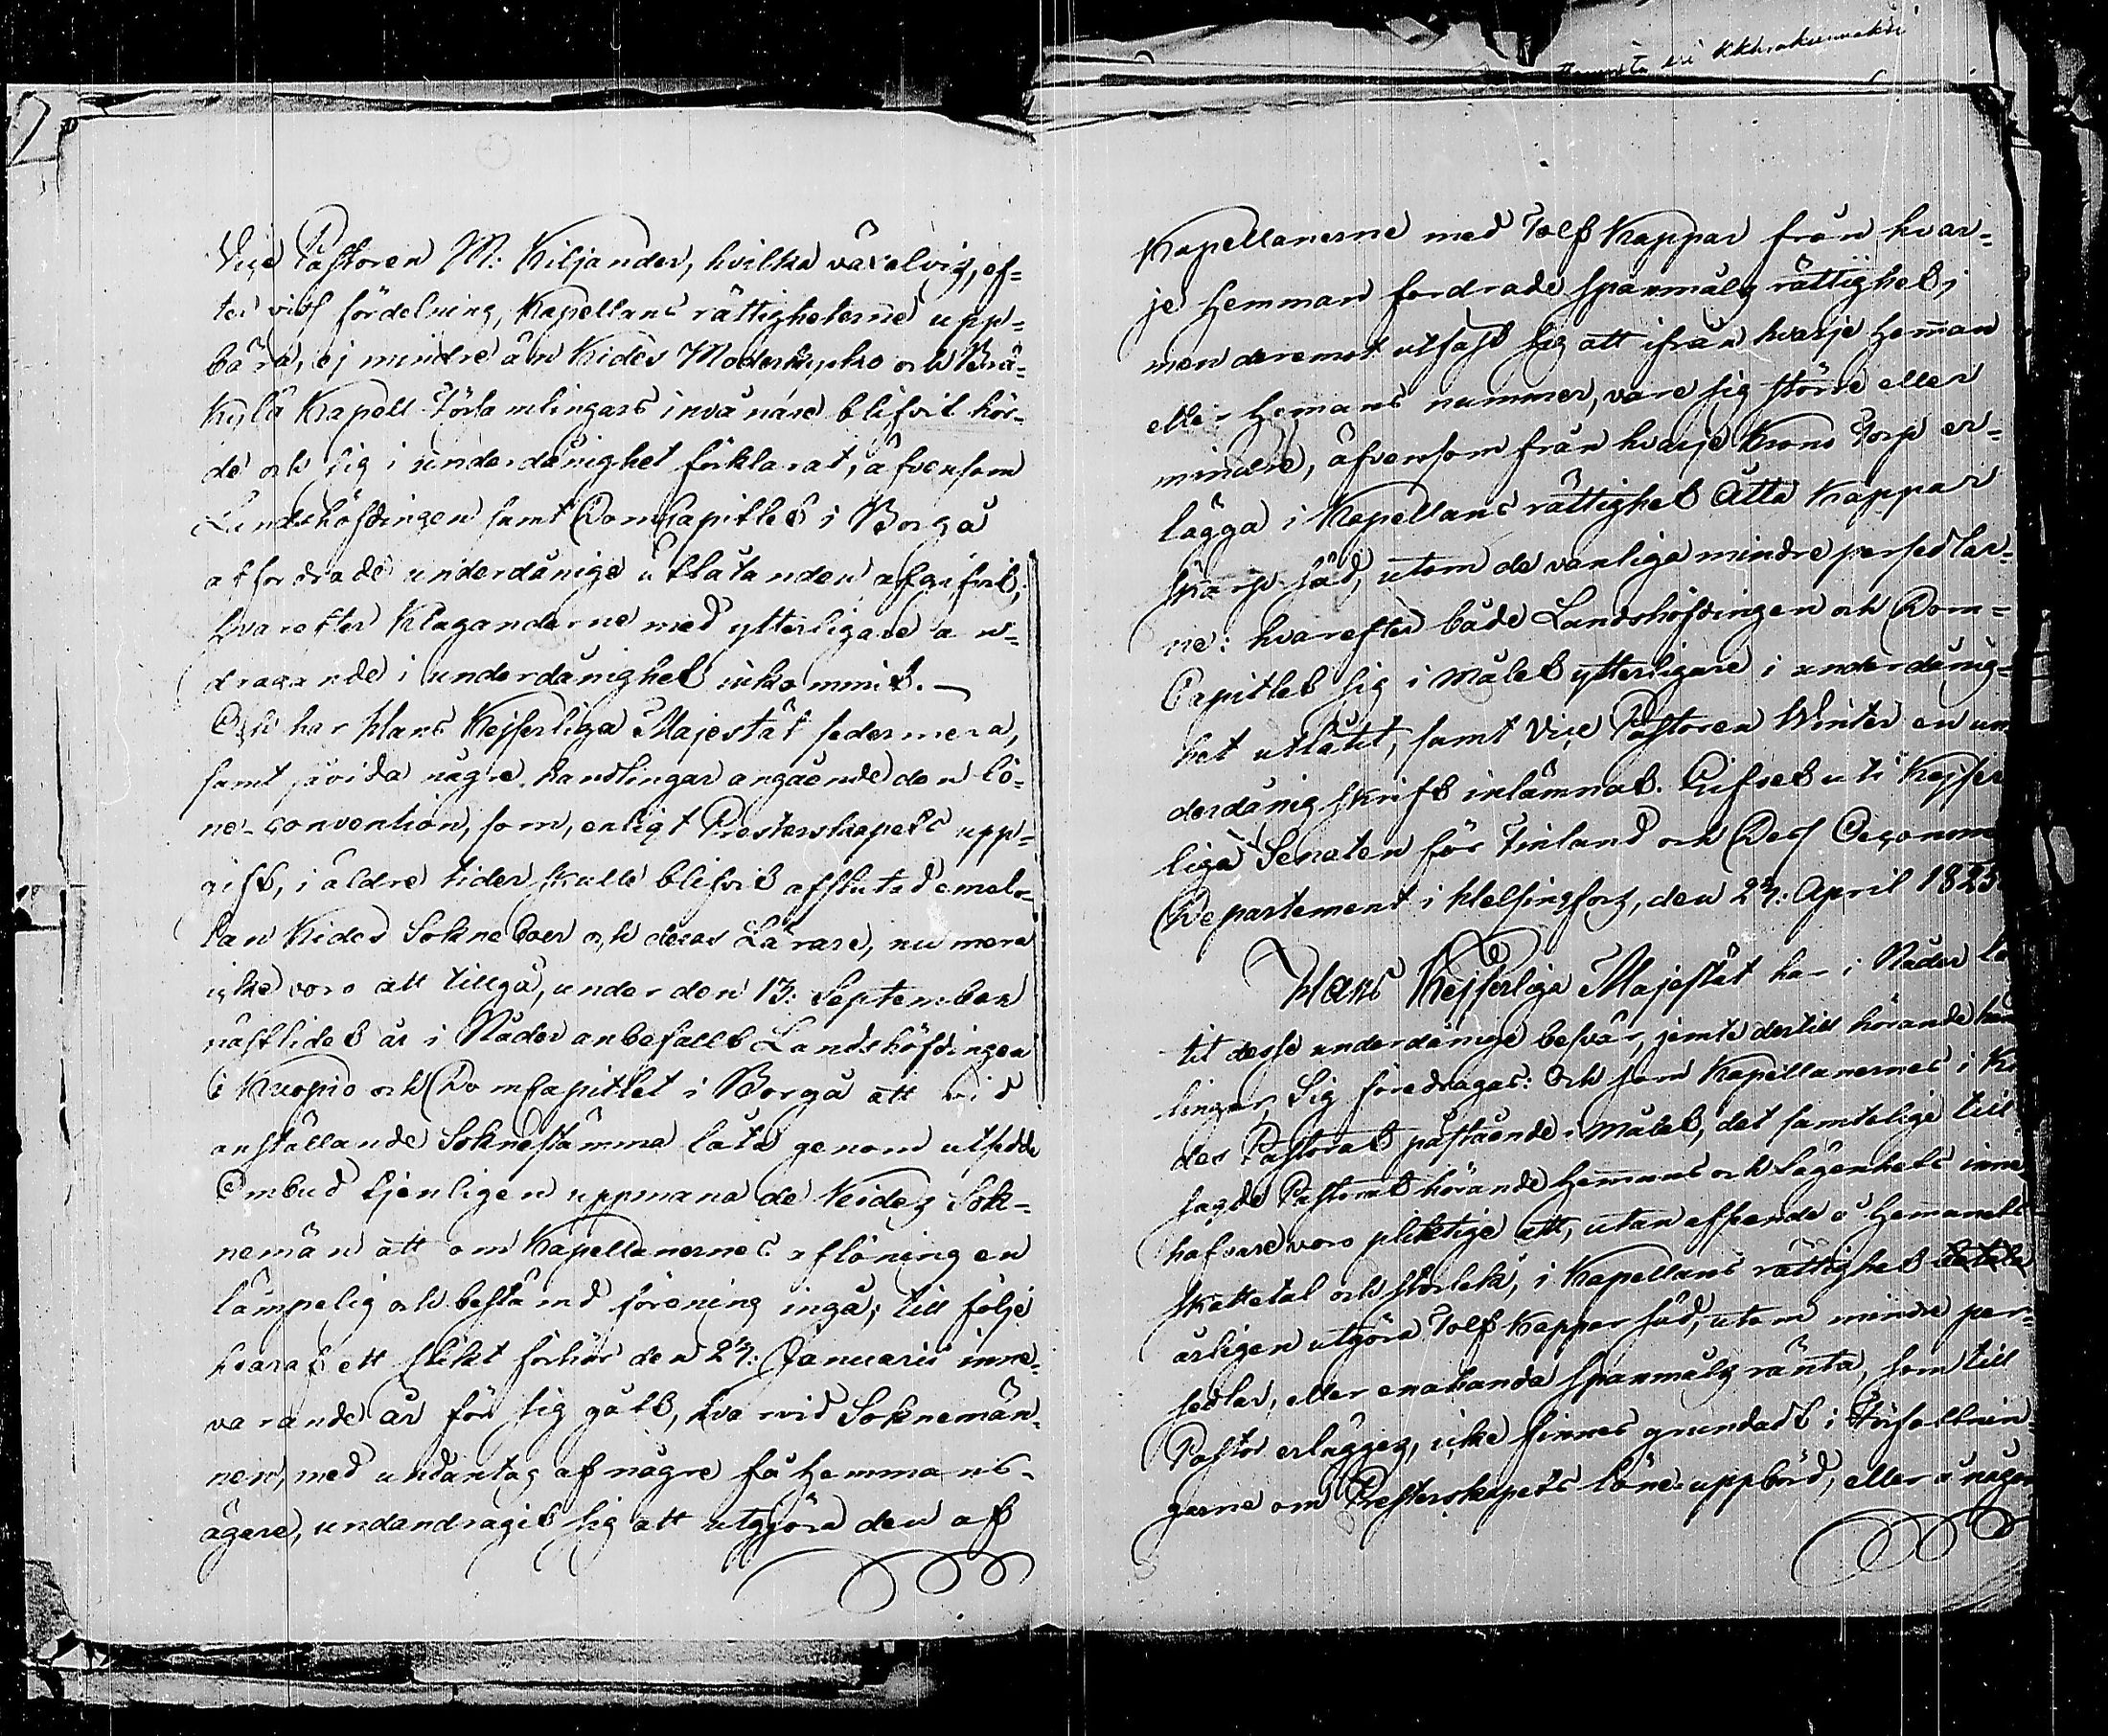 Vice Pastoren M. Kiljander, hvilka växelvis, ef-
ter viss fördelning, Kapellans rättigheterne upp-
bära, ej mindre än Kides Moderkyrko och Brä-
kylä Kapell Församlingars invånare blifvit hör-
de och sig i underdånighet förklarat, äfvensom
Landshöfdingen samt DomCapitlet i Borgå
affordrade underdånige utlåtanden afgifvit,
hvarefter Klaganderne med ytterligare an-
dragande i underdånighet inkommit. —
Och har Hans Kejserliga Majestät sedermera,
samt såvida någre handlingar angående den lö-
ne-convention, som, enligt Presterskapets upp-
gift, i äldre tider skulle blifvit afslutad emel-
lan Kides Sokneboer och deras Lärare, nu mera
icke voro att tillgå, under den 13: September
nästlidet år i Nåder anbefallt Landshöfdingen
i Kuopio och DomCapitlet i Borgå att vid
anställande Soknestämma låta genom utsedde
Ombud tjenligen uppmana de Kides Sok-
nemän att om Kapellanernes aflöning en
lämpelig och bestämd förening ingå; till följe
hvaraf ett slikt förhör den 27: Januarii inne-
varande år för sig gått, hvarvid Soknemän-
nen, med undantag af någre få Hemmans-
ägare, undandragit sig att utgöra den af
Kapellanerne med Tolf Kappar från hvar-
je Hemman fordrade spanmåls rättighet,
men deremot utfäst sig att ifrån hvarje Hemman
eller Hemans nummer, vare sig större eller
mindre, äfvensom från hvarje Krono Torp er-
lägga i Kapellans rättighet Åtta Kappar
skarp säd, utom de vanliga mindre persedlar-
ne: hvarefter både Landshöfdingen och Dom-
Capitlet sig i målet ytterligare i underdånig-
het utlåtit, samt Vice Pastoren Winter en un
derdånig skrift inlämnat. Gifvet uti Kejser
liga Senaten för Finland och Dess Oeconomie
Departement i Helsingfors, den 27: April 1825
Hans Kejserliga Majestät har i Nåder lå
tit desse underdånige besvär, jemte dertill hörande hand
lingar, Sig föredragas: Och som Kapellanernes i Ki
des Pastorat påstående i målet, det samtelige till
sagde Pastorat hörande Hemmans och Lägenhets inne
hafvare voro pliktige att, utan afseende å Hemmanets
skattetal och storlek, i Kapellans rättighet betala
årligen utgöra Tolf Kappar säd, utom mindre per-
sedlar, eller enahanda spanmåls ränta, som till
Pastor erlägges, icke finnes grundadt i Författnin-
garne om Presterskapets löne-uppbörd, eller å någon